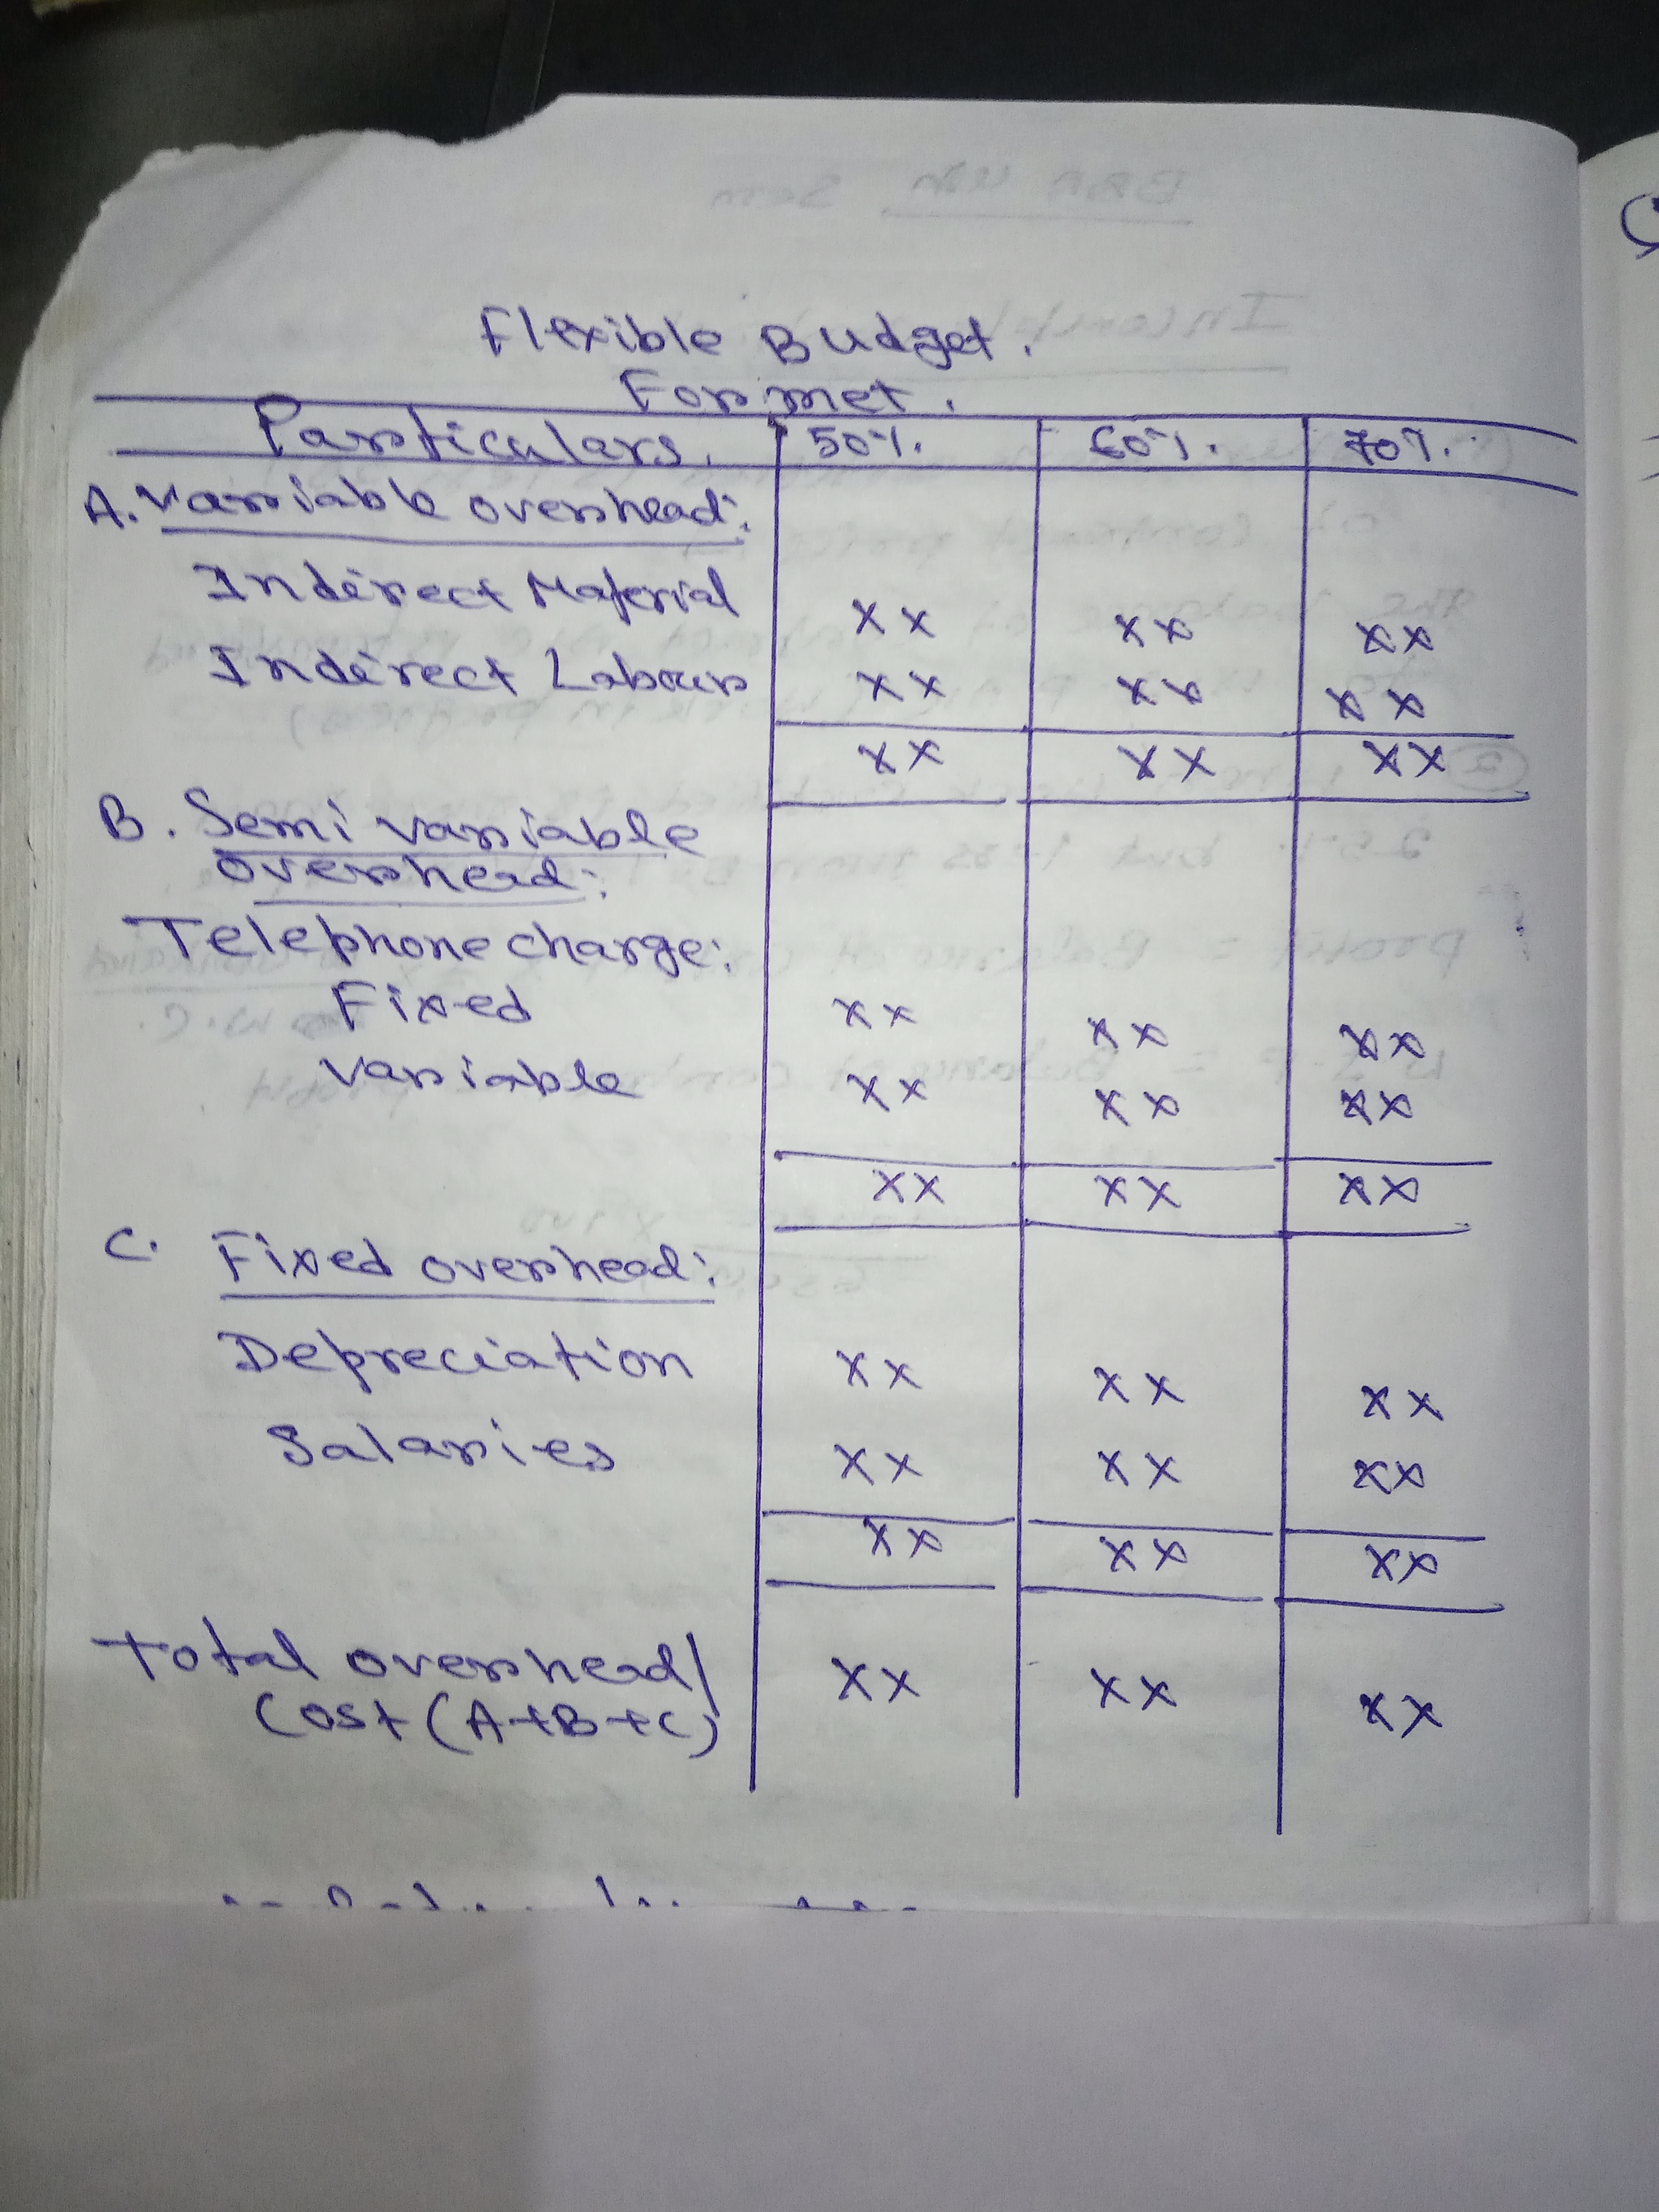 Flexible Budget.
Formet.
Particulars. 50%. 60%. 70%.
A. Variable overhead:
Indirect Material xx xx xx
Indirect Labour xx xx xx
xx xx xx
B. Semi variable
overhead:
Telephone charge:
Fixed xx xx xx
Variable xx xx xx
xx xx xx
C. Fixed overhead:
Depreciation xx xx xx
Salaries xx xx xx
xx xx xx
Total overhead/
Cost (A+B+C) xx xx xx